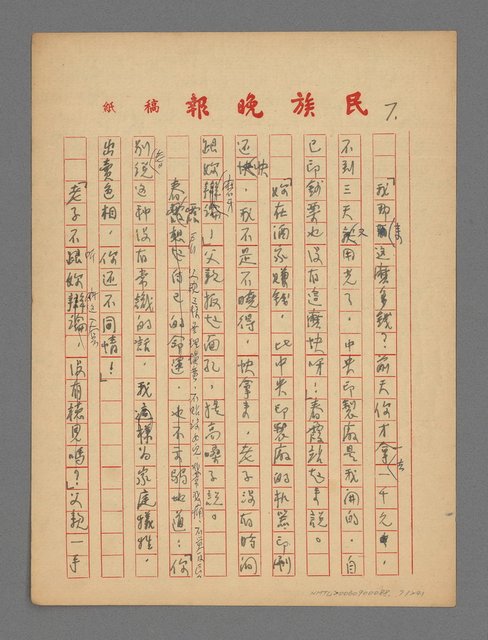 民族晚報 稿紙
7.
「我那有這麼多錢?前天你才拿去一千元,
不到三天又用光了,中央印製廠是我開的,自
己印鈔票也沒有這麼快呀!」春霞站起來說。
「妳在酒家賺錢,比中央印製廠的机器印刷
还快,我不是不曉得,快拿來,老子沒有時間
跟妳磨牙!」父親扳起面孔,提高嗓子說。
春霞想起自己的命運,也不示弱地道:「你
別說這种沒有常識的話,我這樣為家庭犧牲,
出賣色相,你还不同情!」
「老子不跟妳辯論,沒有聽見嗎?」父親一手
NMTL20060900088